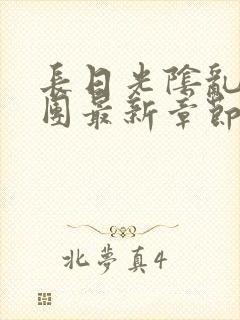 長日光陰亂
團最新章節
北夢真4